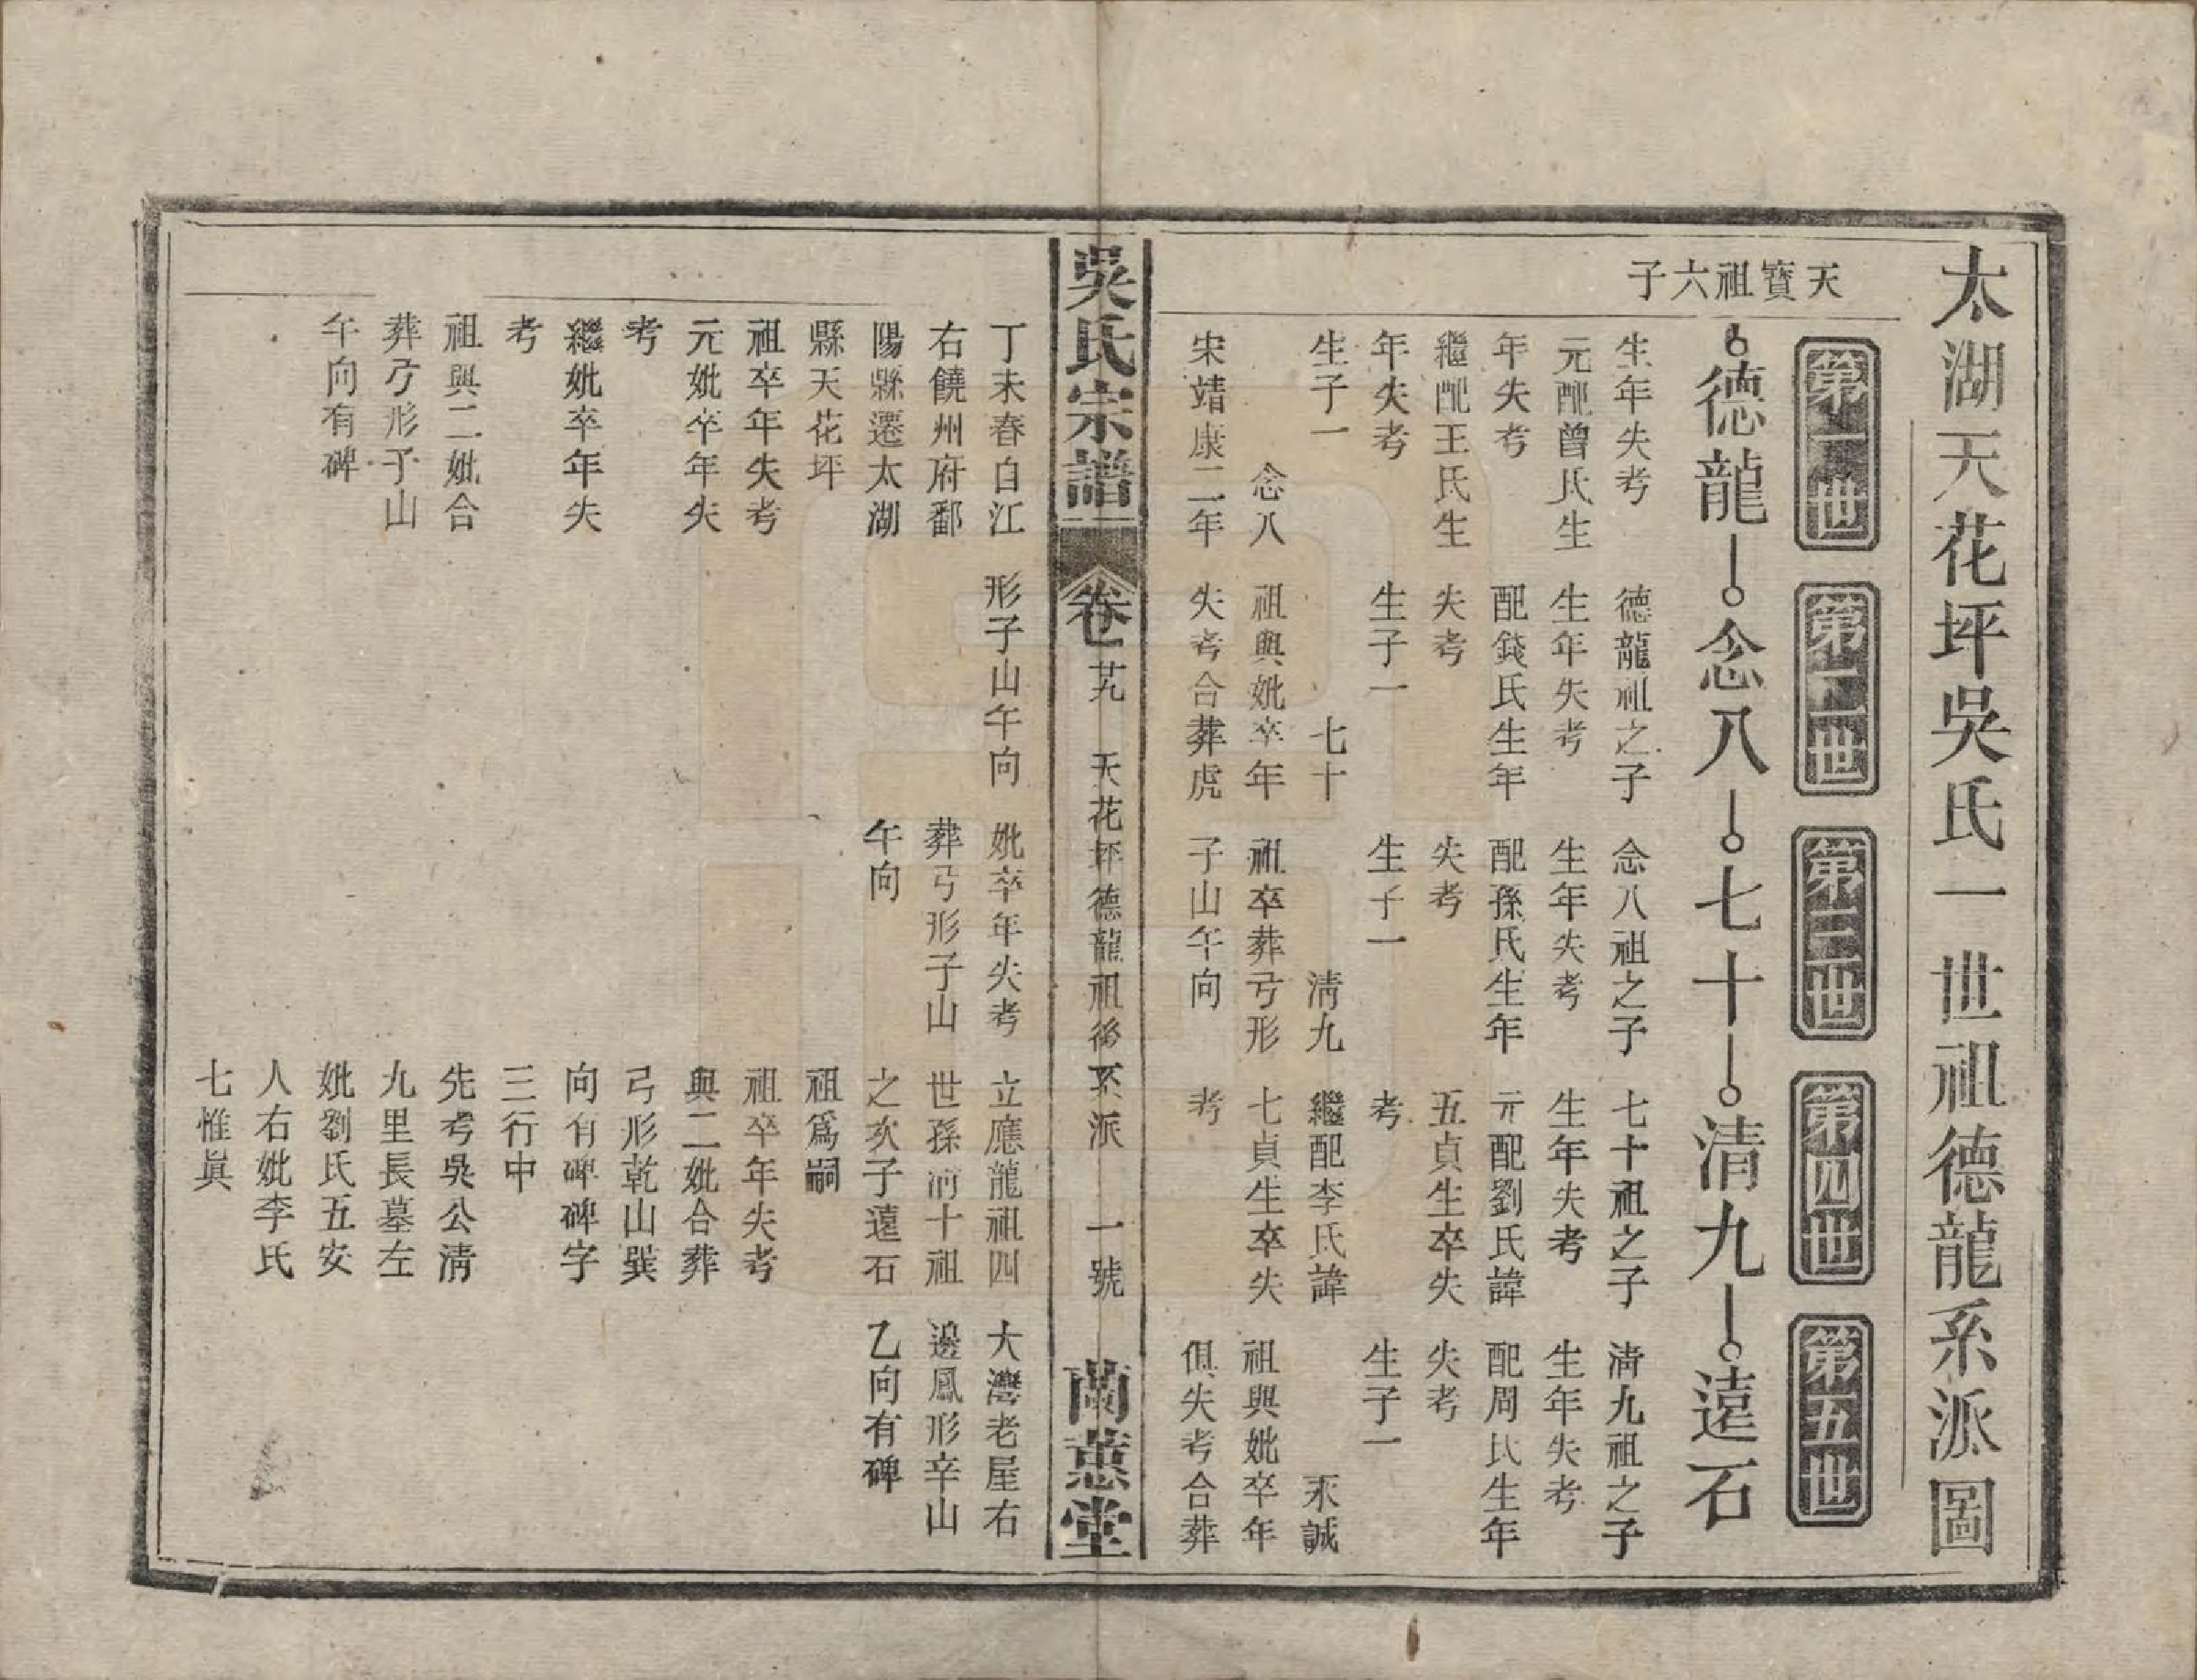 太湖天花坪吳氏一世祖德龍系派圖
第一世
第二世
第三世
第四世
第五世
天寶祖六子
德龍
念八
七十
清九
遠石
生年失考
元配曾氏生
年失考
繼配王氏生
年失考
生子一
念八
宋靖康二年
丁未春自江
右饒州府鄱
陽縣遷太湖
縣天花坪
祖卒年失考
元妣卒年失
考
繼妣卒年失
考
祖與二妣合
葬弓形子山
午向有碑
德龍祖之子
生年失考
配錢氏生年
失考
生子一
七十
祖與妣卒年
失考合葬虎
形子山午向
念八祖之子
生年失考
配孫氏生年
失考
生子一
清九
祖卒葬弓形
子山午向
妣卒年失考
葬弓形子山
午向
七十祖之子
生年失考
元配劉氏諱
五貞生卒失
考
繼配李氏諱
七貞生卒失
考
立應龍祖四
世孫 十祖
之次子遠石
祖爲嗣
祖卒年失考
與二妣合葬
弓形乾山巽
向有碑碑字
三行中
先考吳公清
九里長墓左
妣劉氏五安
人右妣李氏
七惟眞
清九祖之子
生年失考
配周氏生年
失考
生子一
永誠
祖與妣卒年
俱失考合葬
大灣老屋右
邊鳳形辛山
乙向有碑
吳氏宗譜
卷七
廿九
天花坪德龍祖後系派
一號
蘭蕙堂